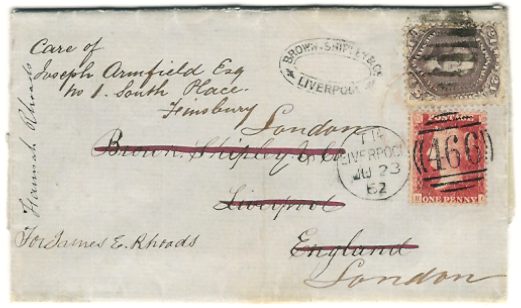 Care of
Joseph Armfield Esq
No 1. South Place.
Finsbury
London
Brown. Shipley & Co
Liverpool
England
London
Hannah Rhoads
For James E. Rhoads
BROWN, SHIPLEY & Co
LIVERPOOL
LIVERPOOL
JU 23
62
POSTAGE
466
ONE PENNY